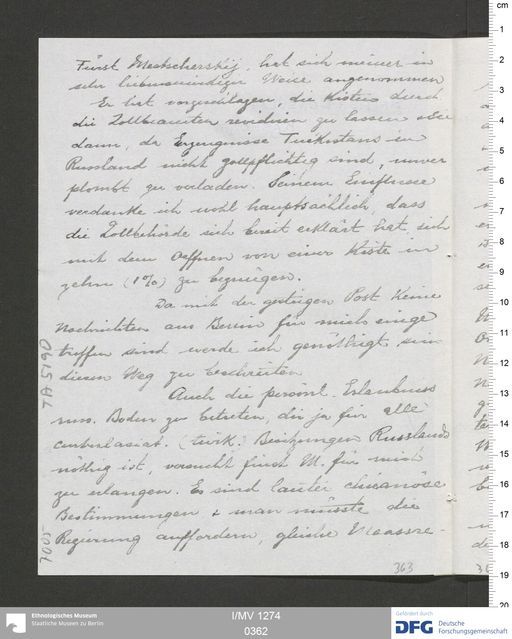 Fürst Mestscherskij hat sich meiner in
sehr liebenswürdiger Weise angenommen
Er hat vorgeschlagen, die Kisten durch
die Zollbeamten revidiren zu lassen oder
dann, da Erzeugnisse Turkistans in
Russland nicht zollpflichtig sind, unver
plombt zu verladen. Seinem Einflusse
verdanke ich wohl hauptsächlich, dass
die Zollbehörde sich bereit erklärt hat, sich
mit dem Oeffnen von einer Kiste in
zehn (1%) zu begnügen.
Da mit der gestrigen Post keine
Nachrichten aus Berlin für mich einge
troffen sind werde ich genöthigt sein
diesen Weg zu beschreiten
Auch die persönl. Erlaubniss
russ. Boden zu betreten, die ja für alle
(turk. Besitzungen Russlands
nöthig ist, versucht Fürst M. für mich
zu erlangen. Es sind lauter chicanöse
Bestimmungen & man müsste die
Regierung auffordern, gleiche Maassre-
363
TA 5190
I/MV 1274
0362
Ethnologisches Museum
Staatliche Museen zu Berlin
Gefördert durch
DFG Deutsche
Forschungsgemeinschaft
cm
1
2
3
4
5
6
7
8
9
10
11
12
13
14
15
16
17
18
19
20